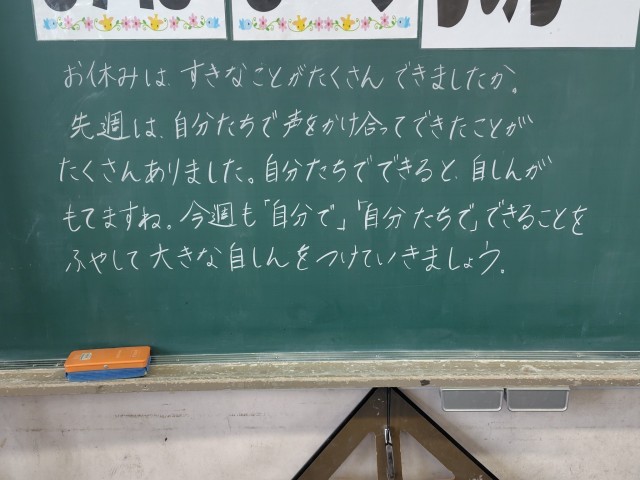 お休みは、すきなことがたくさんできましたか。
先週は、自分たちで声をかけ合ってできたことが
たくさんありました。自分たちでできると、自しんが
もてますね。今週も「自分で」「自分たちで」できることを
ふやして大きな自しんをつけていきましょう。